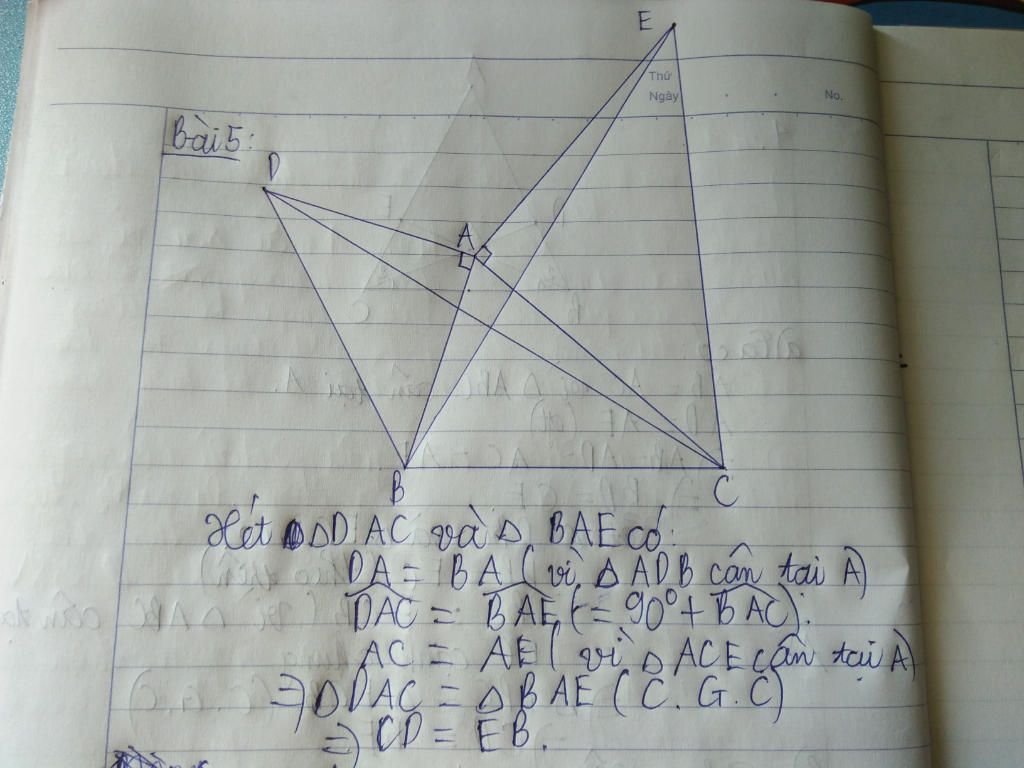 E
Thứ
Ngày
No.
Bài 5:
D
A
B
C
Xét △DAC và △ BAE có:
DA = BA ( vì △ ADB cân tại A)
DAC = BAE (= 90° + BAC).
AC = AE ( vì △ ACE cân tại A)
=> △DAC = △ BAE ( C.G.C)
=> CD = EB.